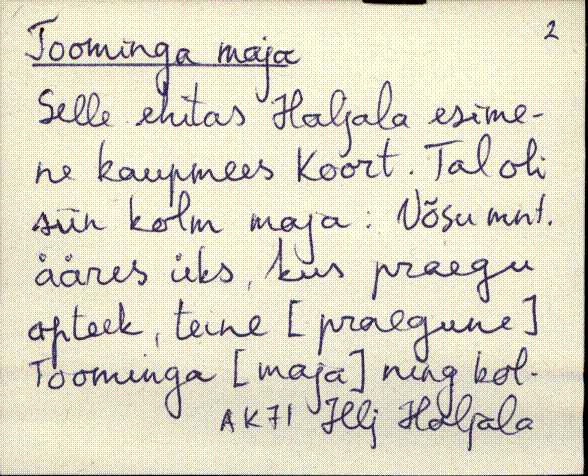 2
Toominga maja
Selle ehitas Haljala esime-
ne kaupmees Koort. Tal oli
siin kolm maja: Võsu mnt.
ääres üks, kus praegu
apteek, teine [praegune]
Toominga [maja] ning kol-
AK71 Hlj Haljala